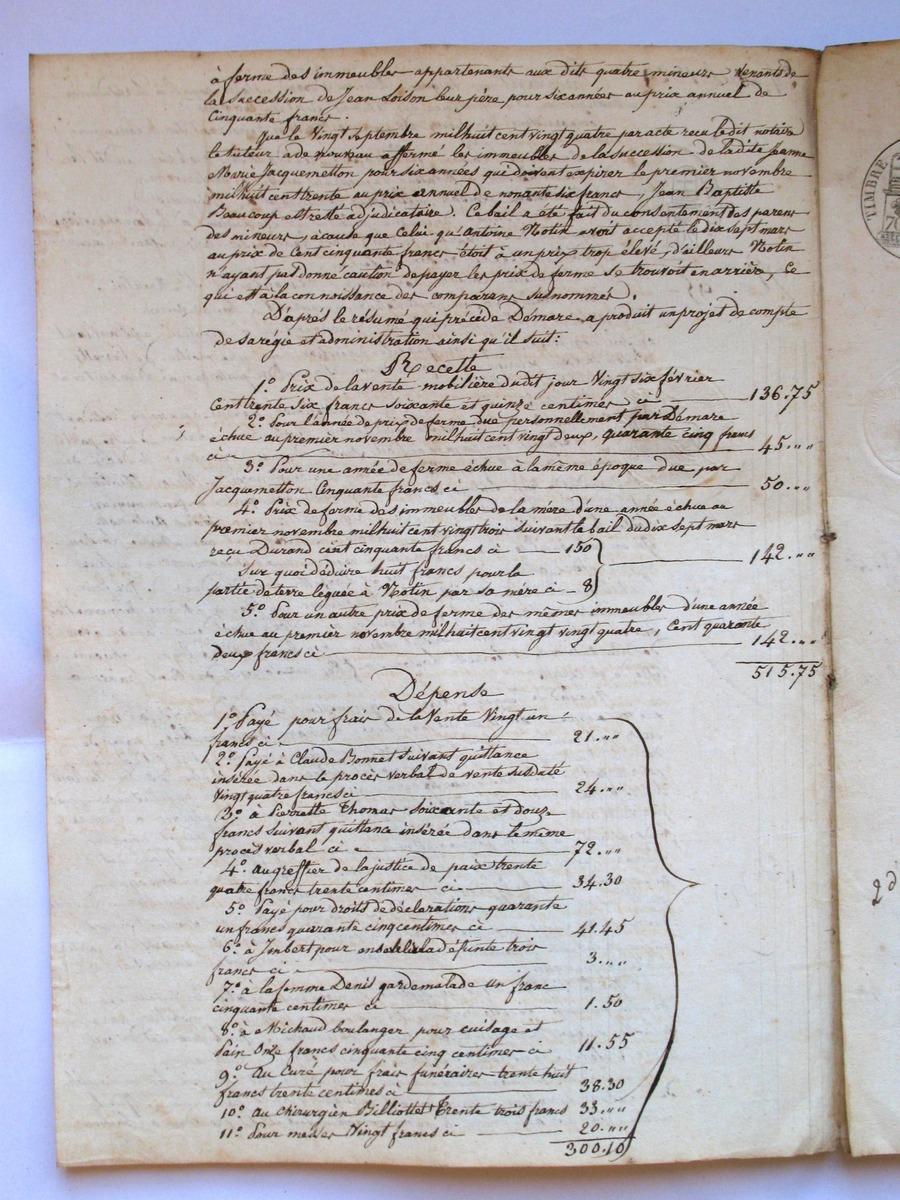 à ferme des immeubles appartenants aux dits quatre mineurs venants de
la succession de Jean Loison leur père pour six années au prix annuel de
Cinquante francs.
Que le Vingt septembre mil huit cent vingt quatre par acte recu le dit notaire
le tuteur a de nouveau affermé les immeubles de la succession de la dite Jeanne
Marie Jacquemetton pour six années qui doivent expirer le premier novembre
mil huit cent trente au prix annuel de nonante six francs, Jean Baptiste
Beaucoup est resté adjudicataire. Ce bail a été fait du consentement des parens
des mineurs, à cause que celui qu'Antoine Notin avoit accepté le dix sept mars
au prix de Cent cinquante francs étoit à un prix trop élevé, d'ailleurs Notin
n'ayant pas donné caution de payer les prix de ferme se trouvoit en arrière, Ce
qui est à la connoissance des comparans susnommés.
D'après le résumé qui précède Démare a produit un projet de compte
de sa régie et administration ainsi qu'il suit:
Recette
1.° Prix de la vente mobilière du dit jour Vingt six février
Cent trente six francs soixante et quinze centimes ci 136.75
2.° Pour l'année de prix de ferme due personnellement par Démare
échue au premier novembre mil huit cent vingt deux, quarante cinq francs
ci 45.""
3.° Pour une année de ferme échue à la même époque due par
Jacquemetton Cinquante francs ci 50.""
4.° Prix de ferme des immeubles de la mère d'une année échue au
premier novembre mil huit cent vingt trois suivant le bail du dix sept mars
reçu Durand cent cinquante francs ci 150
142.""
Sur quoi déduire huit francs pour la
partie de terre léguée à Notin par sa mère ci 8
5.° Pour un autre prix de ferme des mêmes immeubles d'une année
échue au premier novembre mil huit cent vingt vingt quatre, Cent quarante
deux francs ci 142.""
515.75
Dépense
1.° Payé pour frais de la Vente Vingt un
francs ci 21.""
2.° Payé à Claude Bonnet suivant quittance
insérée dans le procès verbal de vente susdaté
Vingt quatre francs ci 24.""
3.° à Pierrette Thomas soixante et douze
francs suivant quittance insérée dans le même
procès verbal ci 72.""
4.° au greffier de la justice de paix trente
quatre francs trente centimes ci 34.30
5.° Payé pour droits de déclarations quarante
un francs quarante cinq centimes ci 41.45
6.° à Imbert pour la défunte trois
francs ci 3.""
7.° à la femme Denis garde malade un franc
cinquante centimes ci 1.50
8.° à Michaud boulanger pour cuisage et
Pain Onze francs cinquante cinq centimes ci 11.55
9.° Au Curé pour frais funéraires trente huit
francs trente centimes ci 38.30
10.° au chirurgien Billiottet Trente trois francs 33.""
11.° Pour messes Vingt francs ci 20.""
300.10
TIMBRE